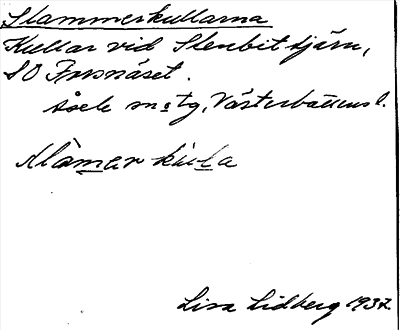 Slammerkullarna
Kullar vid Stenbittjärn,
SO Forsnäset.
Åsele s. o tg, Västerbottens l.
Slamarkulla
Lisa Lidberg 1937.